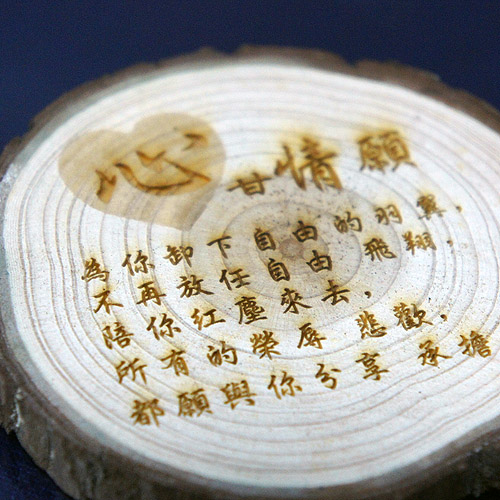 心甘情願
為你卸下自由的羽翼，
不再放任自由飛翔，
陪你紅塵來去，
所有的榮辱悲歡，
都願與你分享承擔